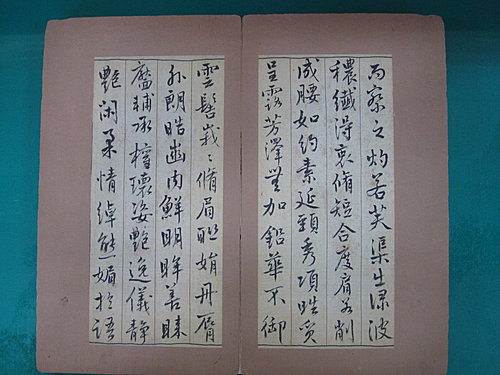 而察之灼若芙渠出淥波
穠纖得衷脩短合度肩若削
成腰如約素延頸秀項皓質
呈露芳澤無加鉛華不御
雲髻峩〻脩眉聯娟丹脣
外朗皓齒內鮮明眸善睞
靨輔承權瓌姿艷逸儀靜
體閑柔情綽態媚於語